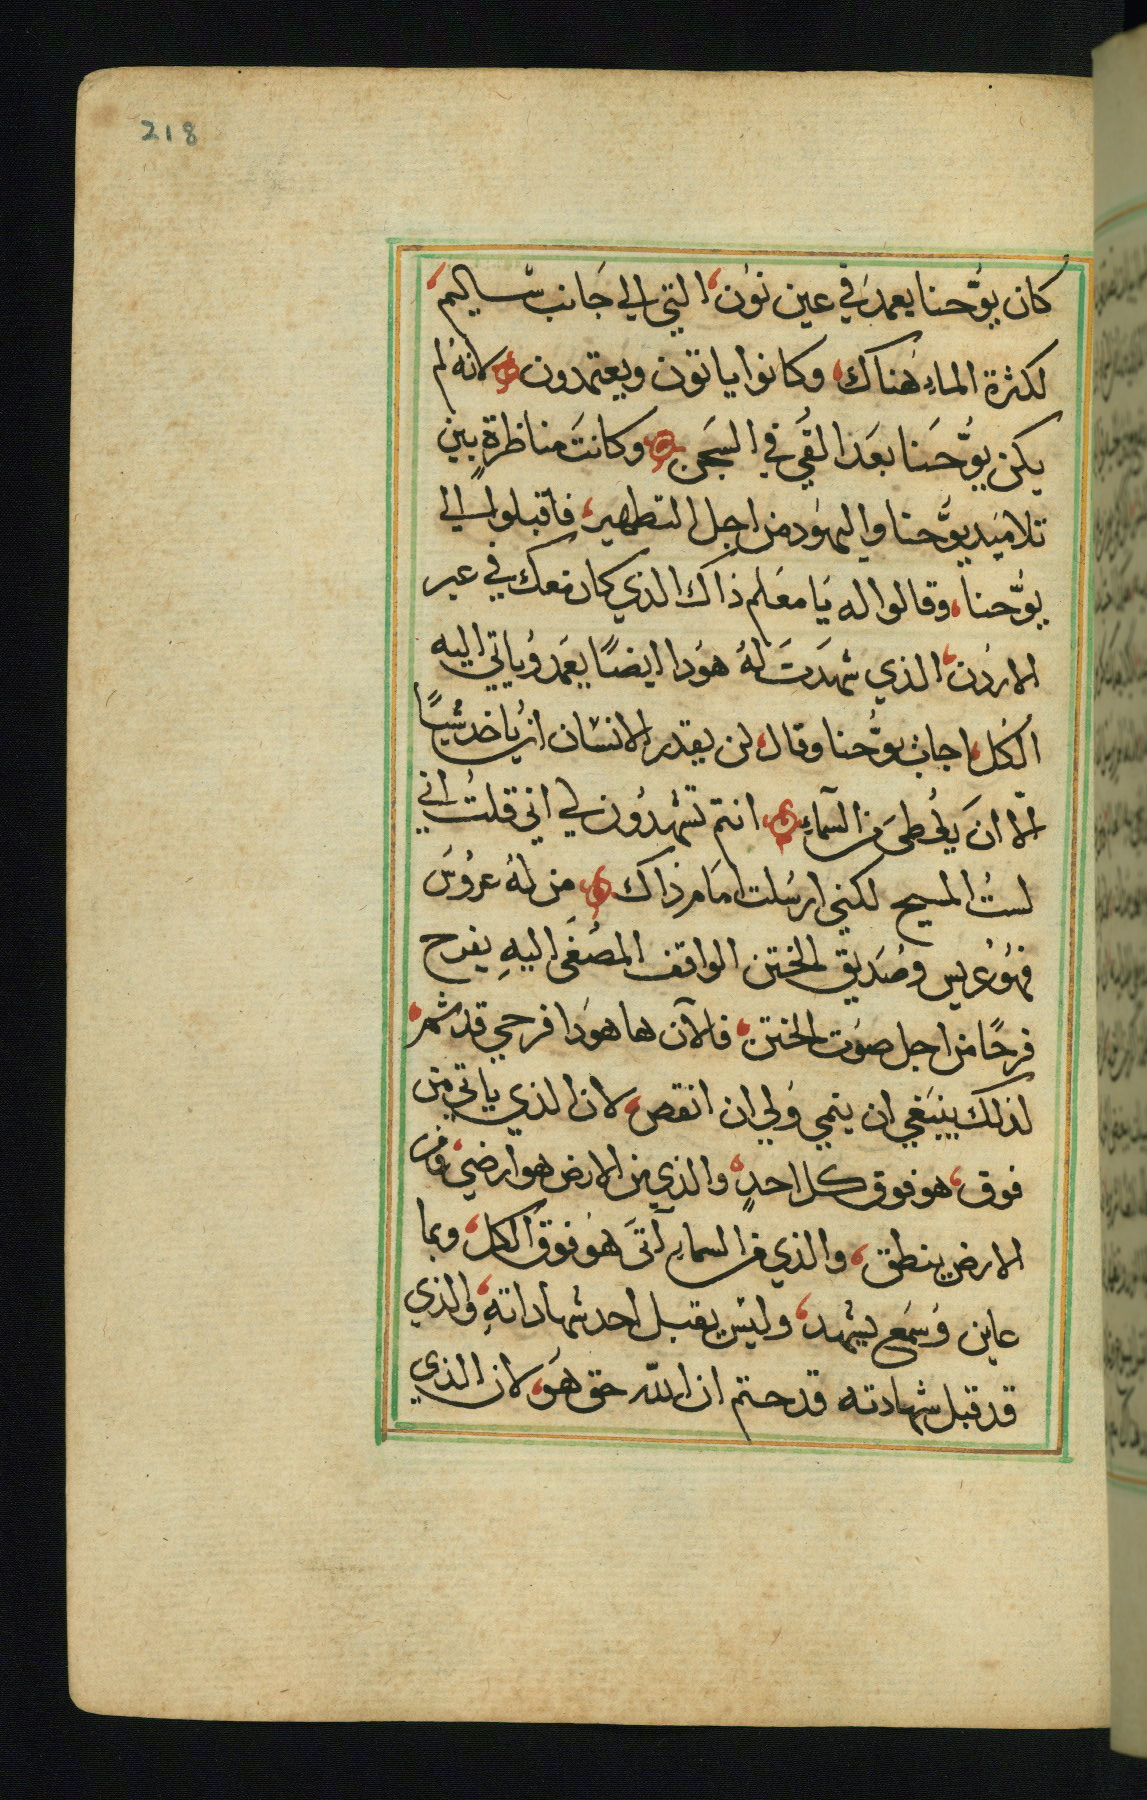 218
كان يوُّحنا يعمدَ في عين نوُن، التي الي جَانب ساليم،
لكثرة الماءِ هُناك، وكانوا ياتون ويعتمدون لانهُ لم
يكن يوُّحَنا بعَد القي في السَجن وكانتَ مناظرةٍ بين
تلاميَد يوُّحنا واليهوَد من اجل التطهير، فاقبلوا الي
يوُّحنا، وقالوا له يَا معَلم ذاك الذي كان معك في عبر
الاردُن، الذي شهدَتَ لهُ هوَدا ايضًا يعَمد وُياتي اليه
الُكل، اجاب يوُّحنا وقال، لن يقدر الانسَان انُ ياخد شيًا
الّا انَ يعُطىَ من السَماءِ انتم تشهدُون لي اني قلتُ اني
لستُ المسيح لكني ارسُلت امَام ذاك من لهُ عروُسَ
فهوُ عُريس وصُديق الختن الواقف المصُغىَ اليهِ يفرح
فرحًا من اجل صوَت الختن، فالآن ها هوَدا فرحي قد تم،
لذلك ينبَغي ان ينمي وَلي ان انقص، لان الذي ياتي من
فوق، هو فوق كل احدٍ، والذي من الارض هو ارضي، ومن
الارض ينطق، والذي من السماءِ آتىَ هوُ فوق الكل، وبما
عاين وُسَمع يشهد، وليسَ يقبل احد شهاداتهِ، والذي
قد قبل شهادته قد ختم ان اللّه حق هوَ، لان الذي